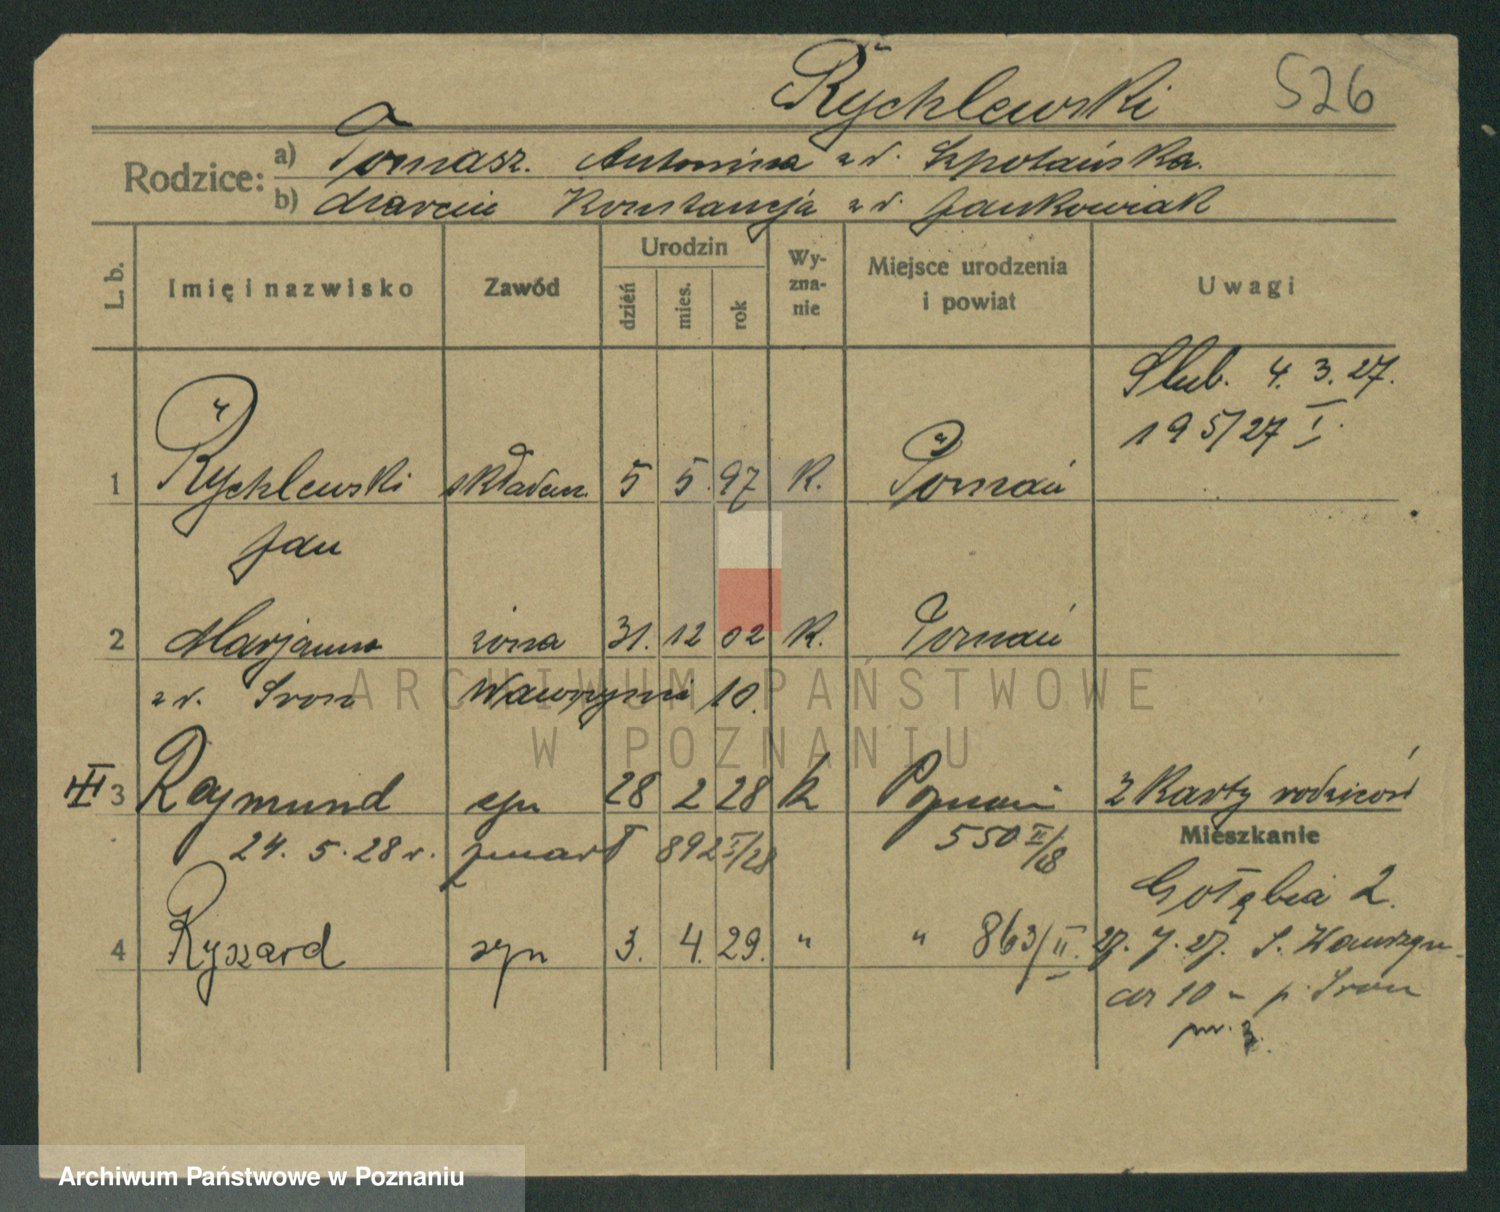 Rychlewski 526
Rodzice: a) Tomasz. Antonina z d. Szpotańska.
b) Marcin Konstancja z d. Jankowiak
L. b. Imię i nazwisko Zawód Urodzin dzień mies. rok Wyznanie Miejsce urodzenia i powiat Uwagi
Ślub. 4. 3. 27.
195/27 I.
1 Rychlewski składacz. 5 5. 97 K. Poznań
Jan
2 Marjanna żona 31. 12 02 K. Poznań
z d. Sron Wawrzyni 10.
III 3 Rajmund syn 28 2 28 k Poznań z Karty rodziców
24. 5. 28 r. zmarł 892 I/28 550 II/28
Mieszkanie
Gołębia 2.
4 Ryszard syn 3. 4. 29. " " 863/II. 27. 7. 27. S. Wawrzyn-
10 - p. Sron
nr. 3.
ARCHIWUM PAŃSTWOWE
W POZNANIU
Archiwum Państwowe w Poznaniu